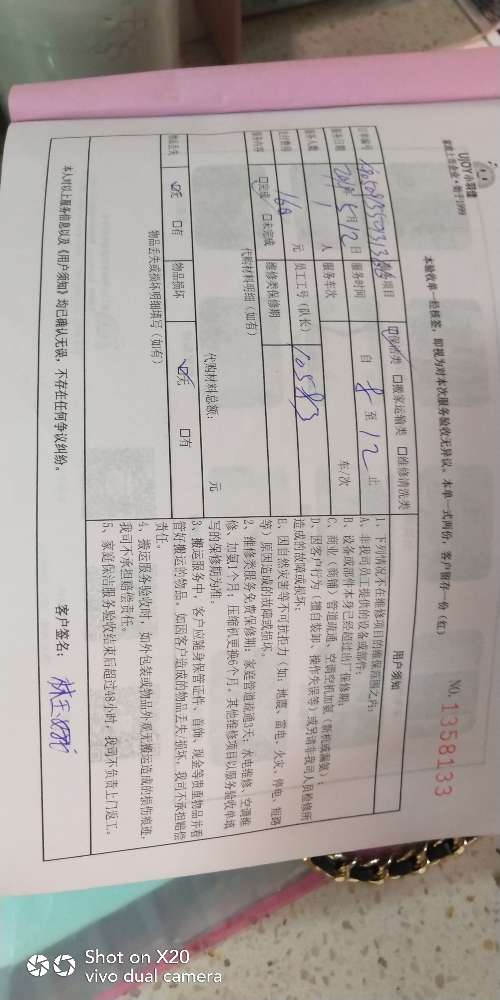 UJOY小羽佳
家政上市企业·始于1999
本验收单一经核签，即视为对本次服务验收无异议。本单一式两份，客户留存一份（红）
NO.1358133
订单编号
项目
☑保洁类 □搬家运输类 □维修清洗类
服务日期 2019年5月12日 服务时间 自 8 至 12 止
服务人数 1 人 服务车次 车/次
支付费用 160 元 员工工号（队长） 10583
服务内容 ☑完成 □未完成 维修类保修期
代购材料明细（如有）
代购材料总额： 元
物品丢失 ☑无 □有 物品损坏 ☑无 □有
物品丢失或损坏明细填写（如有）
用户须知
1、下列情况不在维修项目的维保范围之内：
A、非我司员工提供的设备或部件；
B、设备或部件本身已经超过出厂保修期；
C、商业（街铺）管道疏通、空调空机加氨（新机或漏氨）；
D、因客户行为（擅自装卸、操作失误等）或另请非我司人员检修所
造成的故障或损坏；
E、因自然灾害等不可抗拒力（如：地震、雷电、火灾、停电、短路
等）原因造成的故障或损坏。
2、维修类服务免费保修期：家庭管道疏通3天；水电维修、空调维
修、加氨1个月；压缩机更换6个月，其他维修项目以服务验收单填
写的保修期为准。
3、搬运服务中，客户应随身保管证件、首饰、现金等贵重物品并看
管好搬运的物品。如因客户造成的物品丢失/损坏，我司不承担赔偿
责任。
4、搬运服务验收时，如外包装或物品外观无搬运造成的损伤痕迹，
我司不承担赔偿责任。
5、家庭保洁服务验收结束后超过48小时，我司不负责上门返工。
本人对以上服务信息以及《用户须知》均已确认无误，不存在任何争议纠纷。
客户签名：
Shot on X20
vivo dual camera